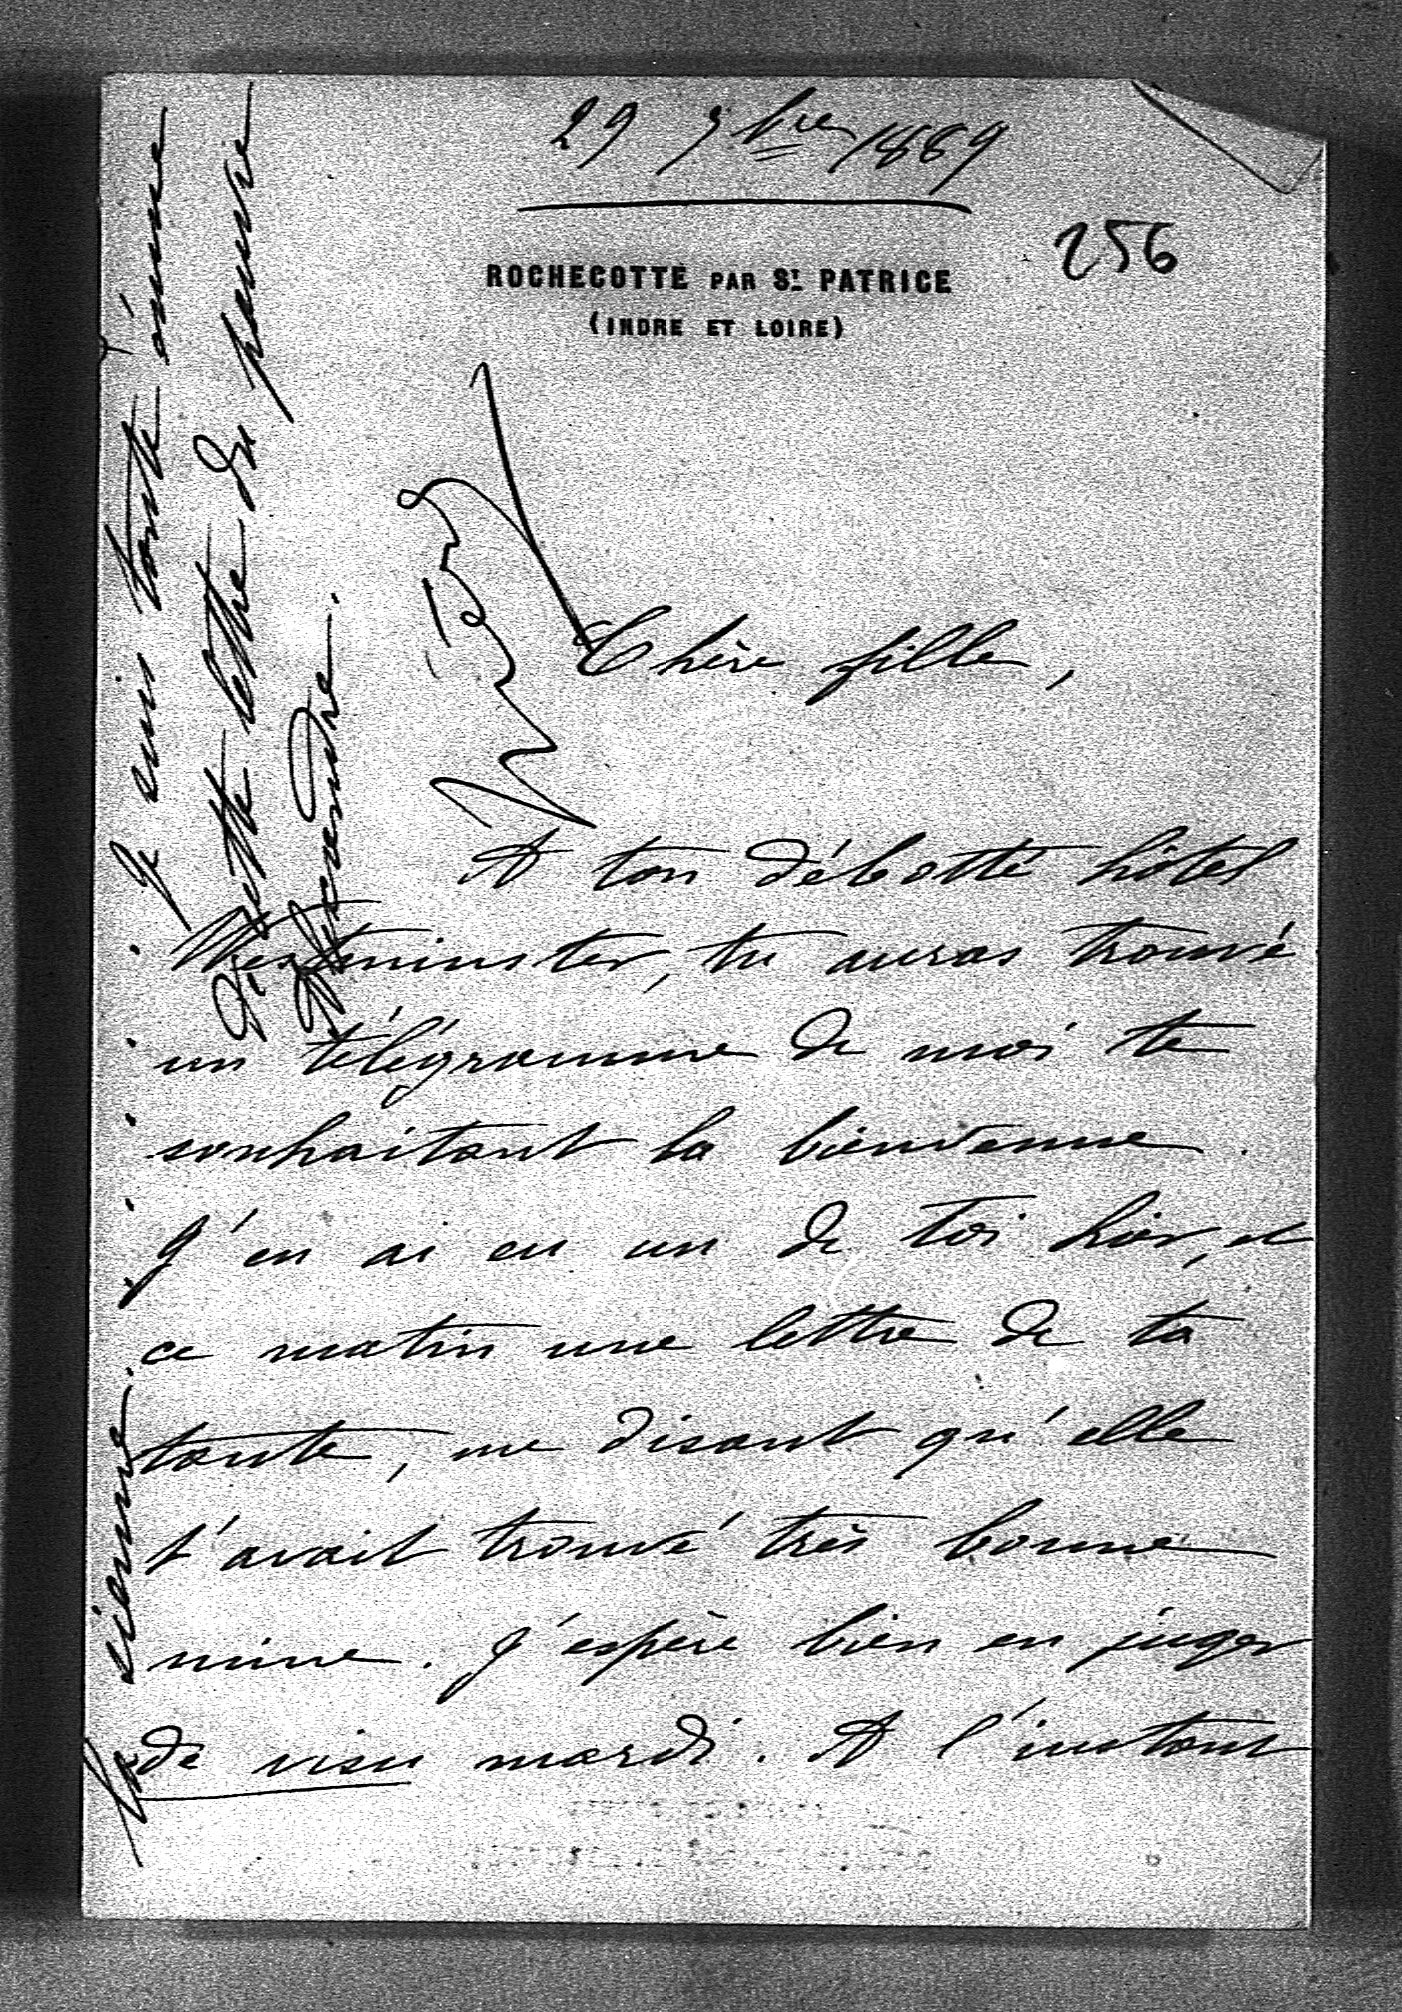 29 9bre 1889
256
ROCHECOTTE PAR ST. PATRICE
(INDRE ET LOIRE)
Chère fille,
A ton débotté hôtel
Westminster, tu auras trouvé
un télégramme de moi te
souhaitant la bienvenue.
J'en ai eu un de toi hier, et
ce matin une lettre de ta
tante, me disant qu'elle
t'avait trouvé très bonne
mine. J'espère bien en juger
de visu mardi. A l'instant
la tienne.
Je suis toute émue
de cette lettre de pauvre